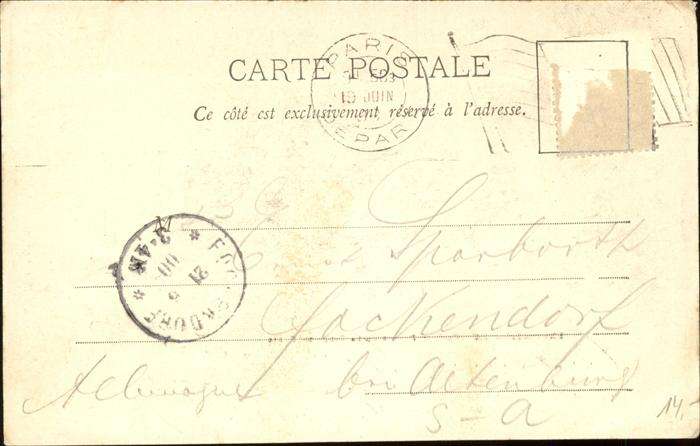 CARTE POSTALE
Ce côté est exclusivement réservé à l'adresse.
PARIS
19 JUIN
DEPART
Sparborth
Fockendorf
Allemagne bei Altenburg
S-A
14.-